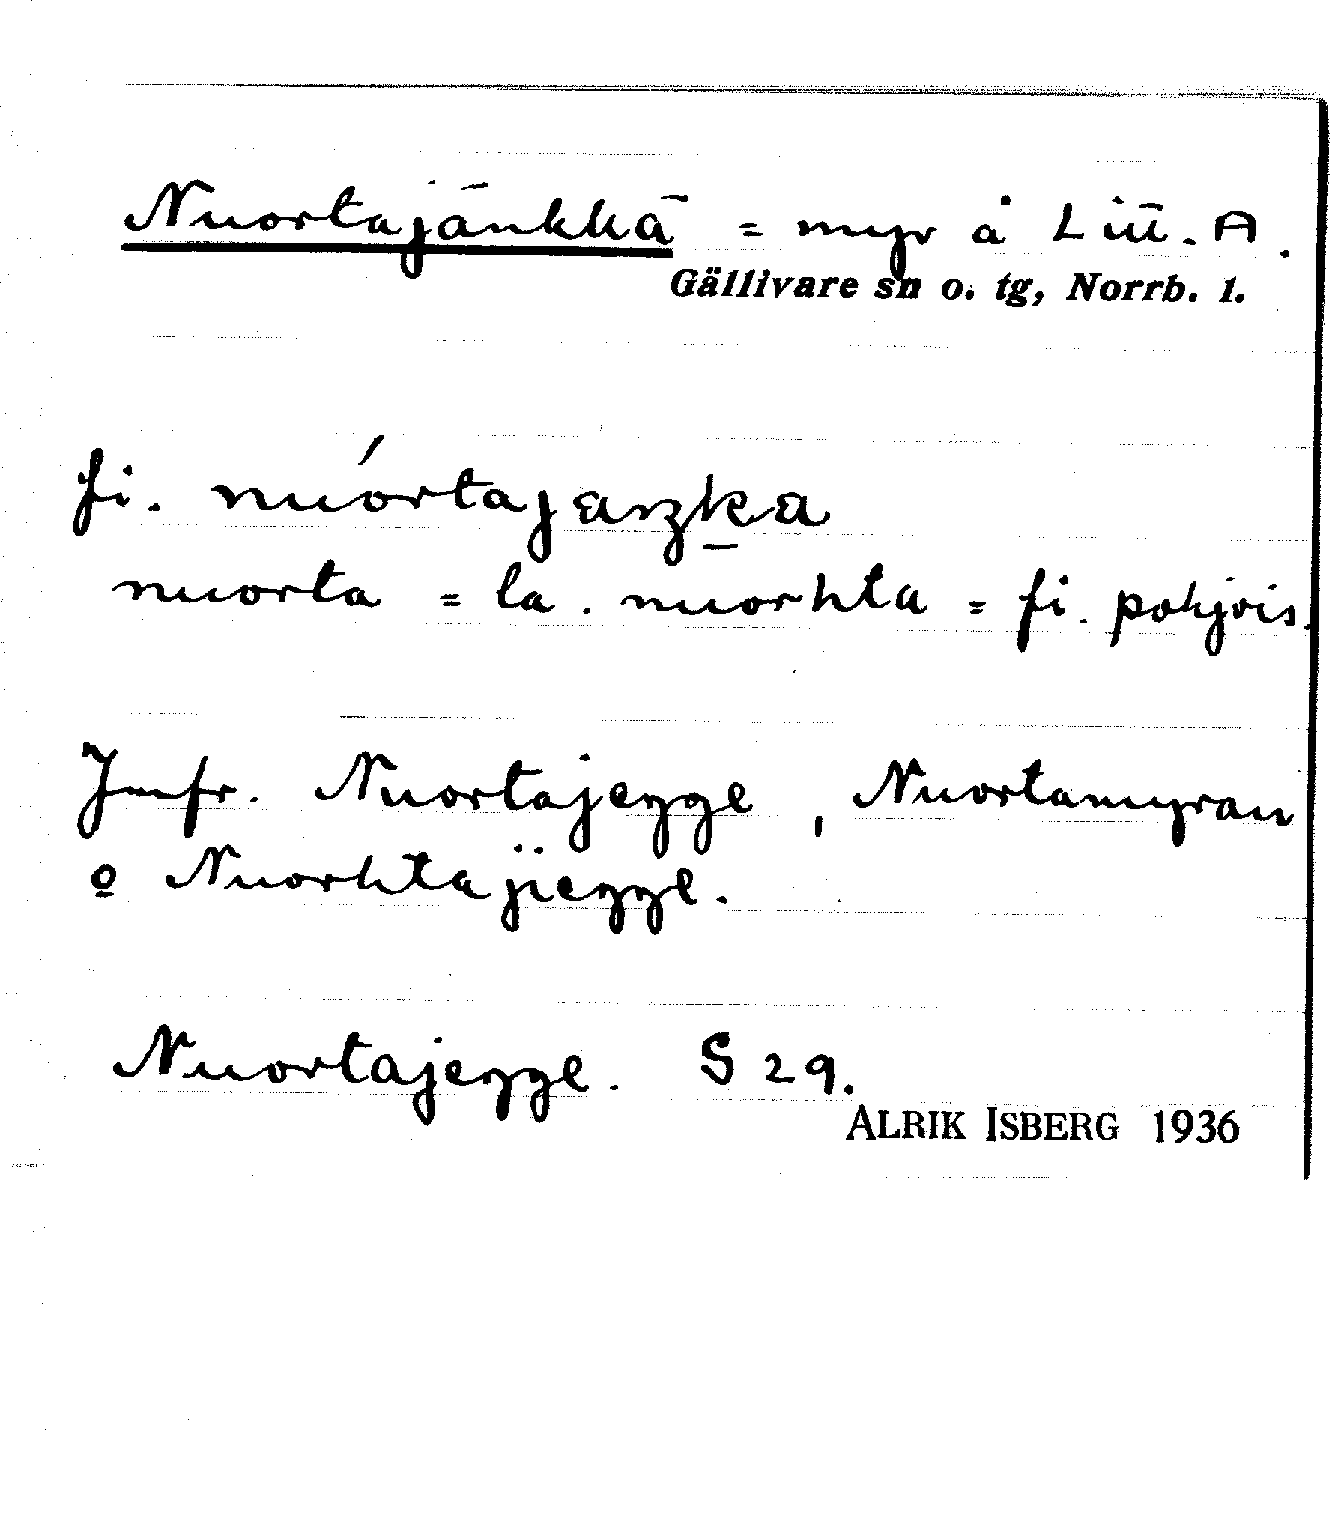 Nuortajänkkä = myr å Litt. A.
Gällivare sn o. tg, Norrb. l.
fi. nuórtajaŋka
nuorta = la. nuorhta = fi. pohjois.
Jmfr. Nuortajegge, Nuortamyran
o Nuorhtajiegge.
Nuortajegge. S 29.
ALRIK ISBERG 1936